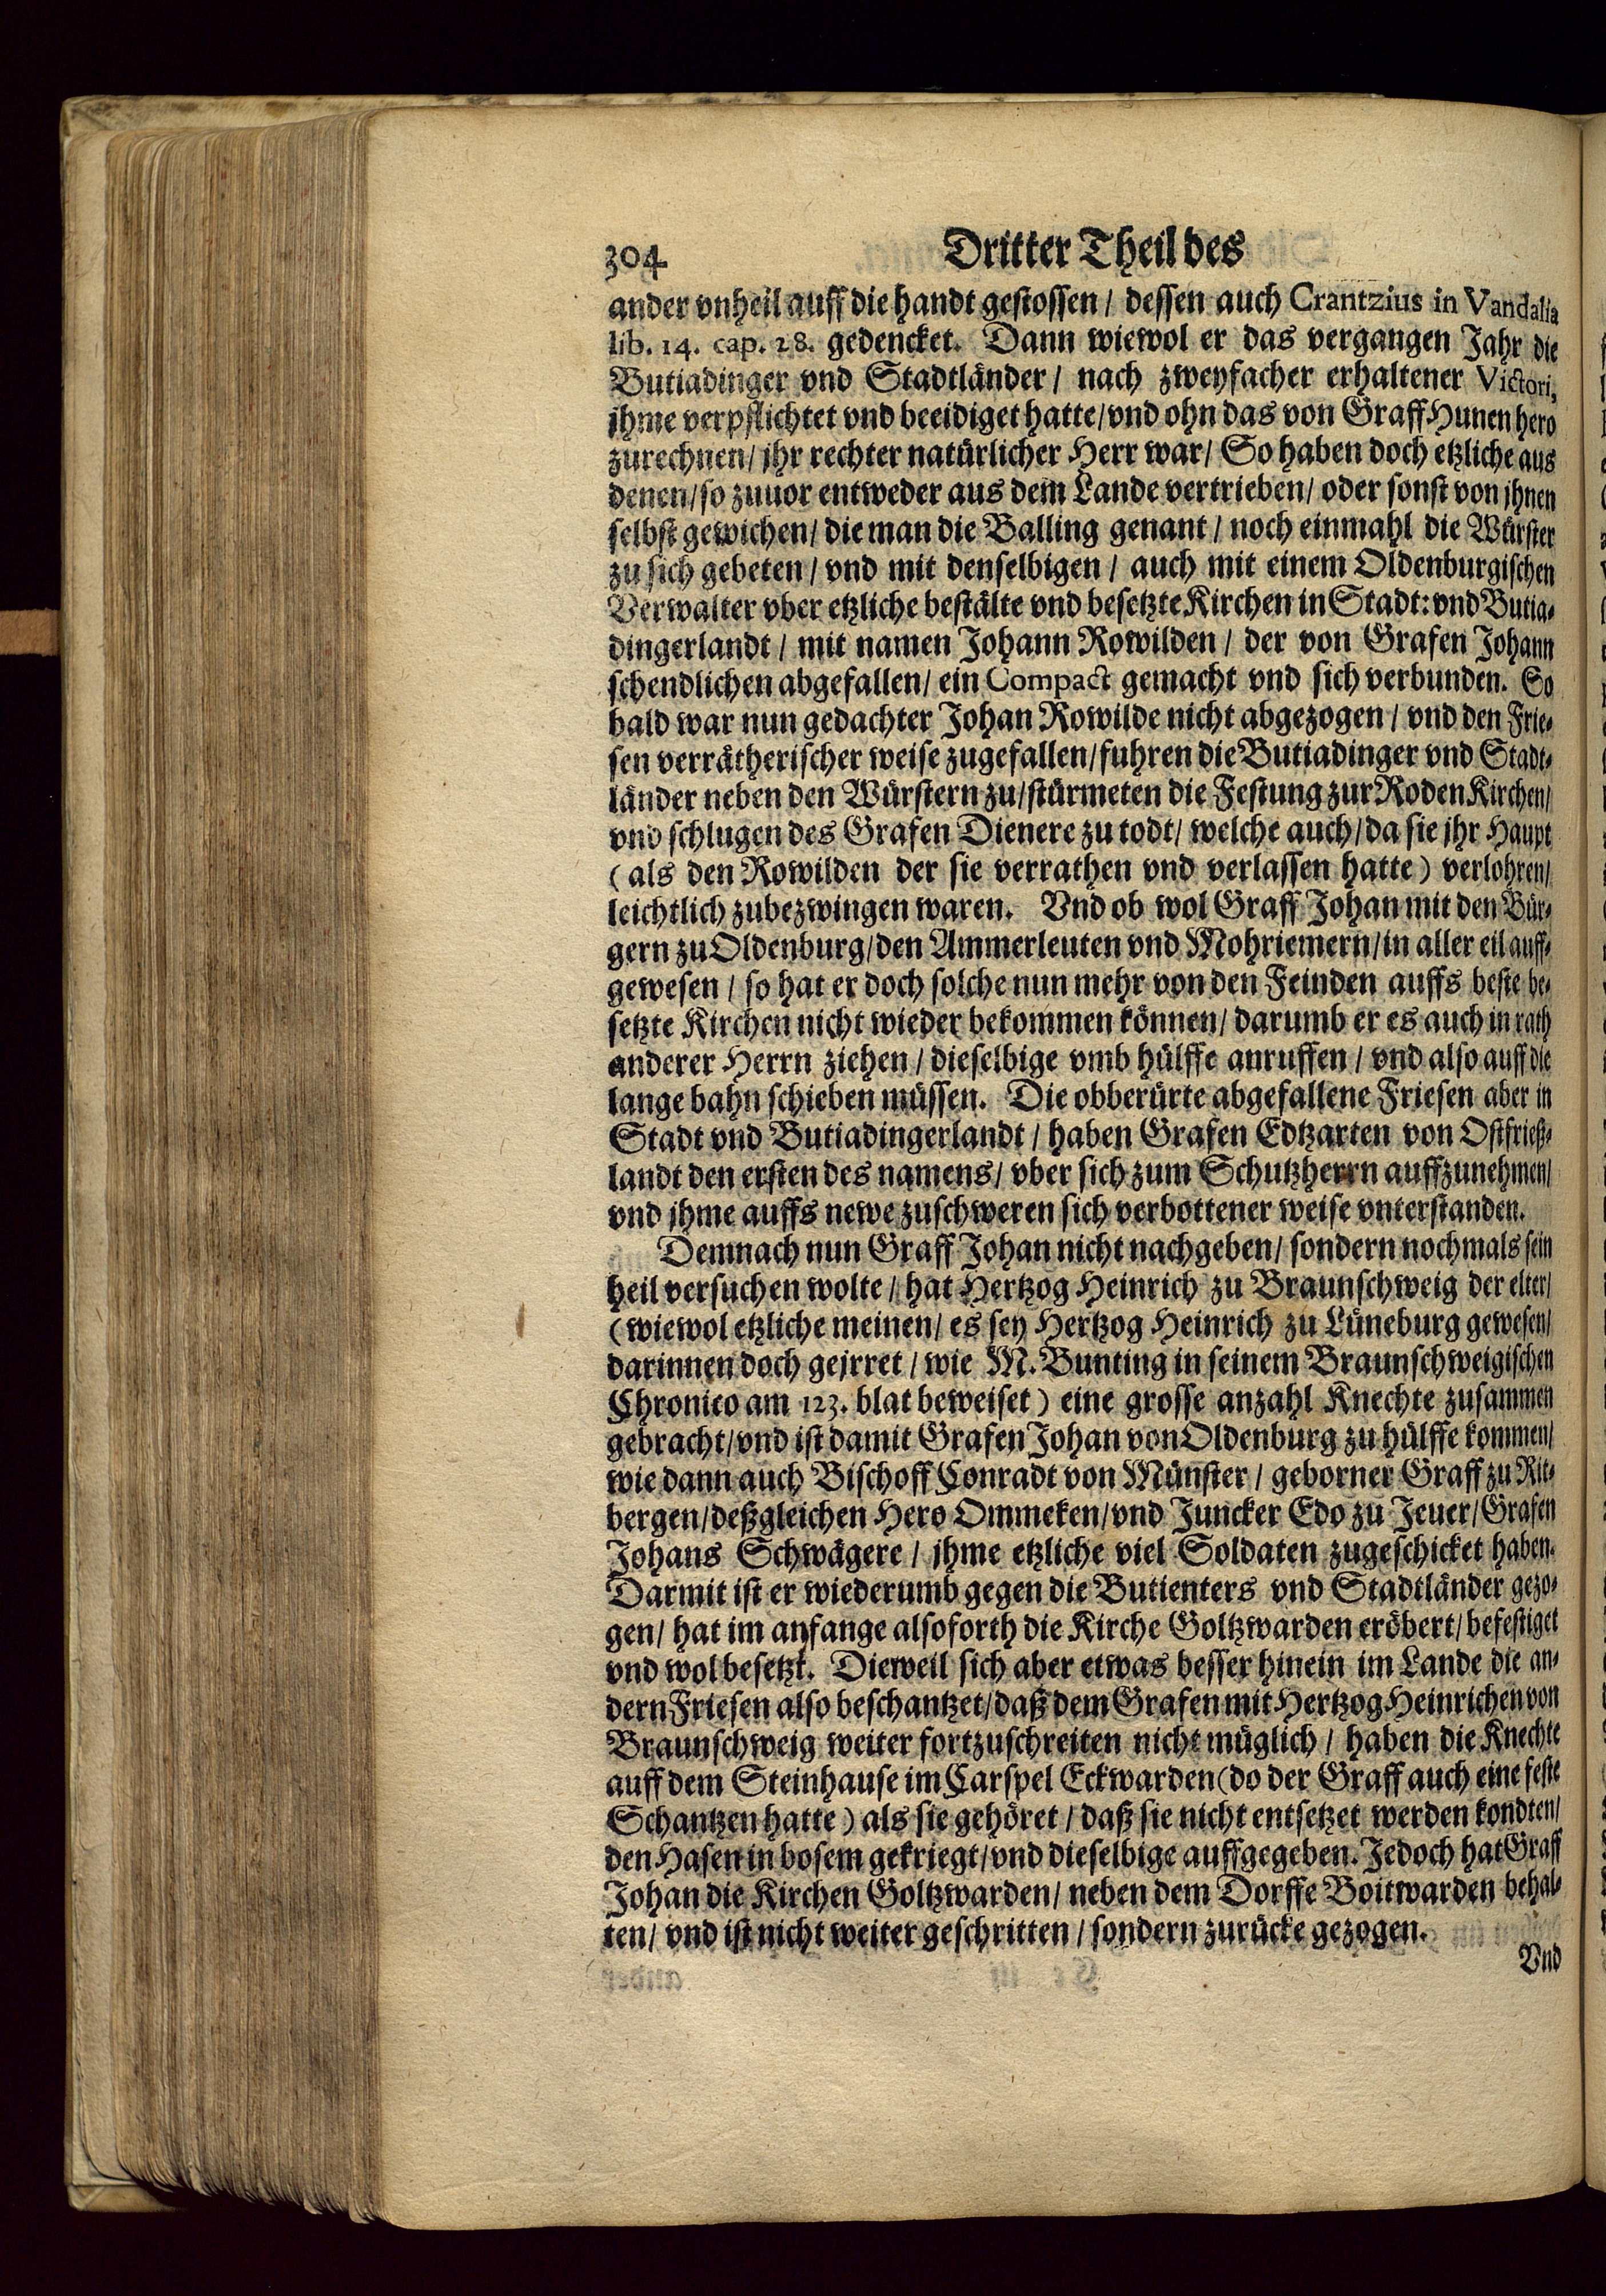 304 Dritter Theil des
ander vnheil auff die handt gestossen / dessen auch Crantzius in Vandalia
lib. 14. cap. 28. gedencket. Dann wiewol er das vergangen Jahr die
Butiadinger vnd Stadtländer / nach zweyfacher erhaltener Victori,
jhme verpflichtet vnd beeidiget hatte / vnd ohn das von Graff Hunen hero
zurechnen / jhr rechter natürlicher Herr war / So haben doch etzliche aus
denen / so zuuor entweder aus dem Lande vertrieben / oder sonst von jhnen
selbst gewichen / die man die Balling genant / noch einmahl die Würster
zu sich gebeten / vnd mit denselbigen / auch mit einem Oldenburgischen
Verwalter vber etzliche bestälte vnd besetzte Kirchen in Stadt: vnd Butia-
dingerlandt / mit namen Johann Rowilden / der von Grafen Johann
schendlichen abgefallen / ein Compact gemacht vnd sich verbunden. So
bald war nun gedachter Johan Rowilde nicht abgezogen / vnd den Frie-
sen verrätherischer weise zugefallen / fuhren die Butiadinger vnd Stadt-
länder neben den Würstern zu / stürmeten die Festung zur Roden Kirchen /
vnd schlugen des Grafen Dienere zu todt / welche auch / da sie jhr Haupt
(als den Rowilden der sie verrathen vnd verlassen hatte) verlohren /
leichtlich zubezwingen waren. Vnd ob wol Graff Johan mit den Bür-
gern zu Oldenburg / den Ammerleuten vnd Mohriemern / in aller eil auff-
gewesen / so hat er doch solche nun mehr von den Feinden auffs beste be-
setzte Kirchen nicht wieder bekommen können / darumb er es auch in rath
anderer Herrn ziehen / dieselbige vmb hülffe anruffen / vnd also auff die
lange bahn schieben müssen. Die obberürte abgefallene Friesen aber in
Stadt vnd Butiadingerlandt / haben Grafen Edtzarten von Ostfrieß-
landt den ersten des namens / vber sich zum Schutzherrn auffzunehmen /
vnd jhme auffs newe zuschweren sich verbottener weise vnterstanden.
Demnach nun Graff Johan nicht nachgeben / sondern nochmals sein
heil versuchen wolte / hat Hertzog Heinrich zu Braunschweig der elter /
(wiewol etzliche meinen / es sey Hertzog Heinrich zu Lüneburg gewesen /
darinnen doch gejrret / wie M. Bunting in seinem Braunschweigischen
Chronico am 123. blat beweiset) eine grosse anzahl Knechte zusammen
gebracht / vnd ist damit Grafen Johan von Oldenburg zu hülffe kommen /
wie dann auch Bischoff Conradt von Münster / geborner Graff zu Rit-
bergen / deßgleichen Hero Ommeken / vnd Juncker Edo zu Jeuer / Grafen
Johans Schwägere / jhme etzliche viel Soldaten zugeschicket haben.
Darmit ist er wiederumb gegen die Butienters vnd Stadtländer gezo-
gen / hat im anfange alsoforth die Kirche Goltzwarden eröbert / befestiget
vnd wol besetzt. Dieweil sich aber etwas besser hinein im Lande die an-
dern Friesen also beschantzet / daß dem Grafen mit Hertzog Heinrichen von
Braunschweig weiter fortzuschreiten nicht müglich / haben die Knechte
auff dem Steinhause im Carspel Eckwarden (do der Graff auch eine feste
Schantzen hatte) als sie gehöret / daß sie nicht entsetzet werden kondten /
den Hasen in bosem gekriegt / vnd dieselbige auffgegeben. Jedoch hat Graff
Johan die Kirchen Goltzwarden / neben dem Dorffe Boitwarden behal-
ten / vnd ist nicht weiter geschritten / sondern zurücke gezogen.
Vnd